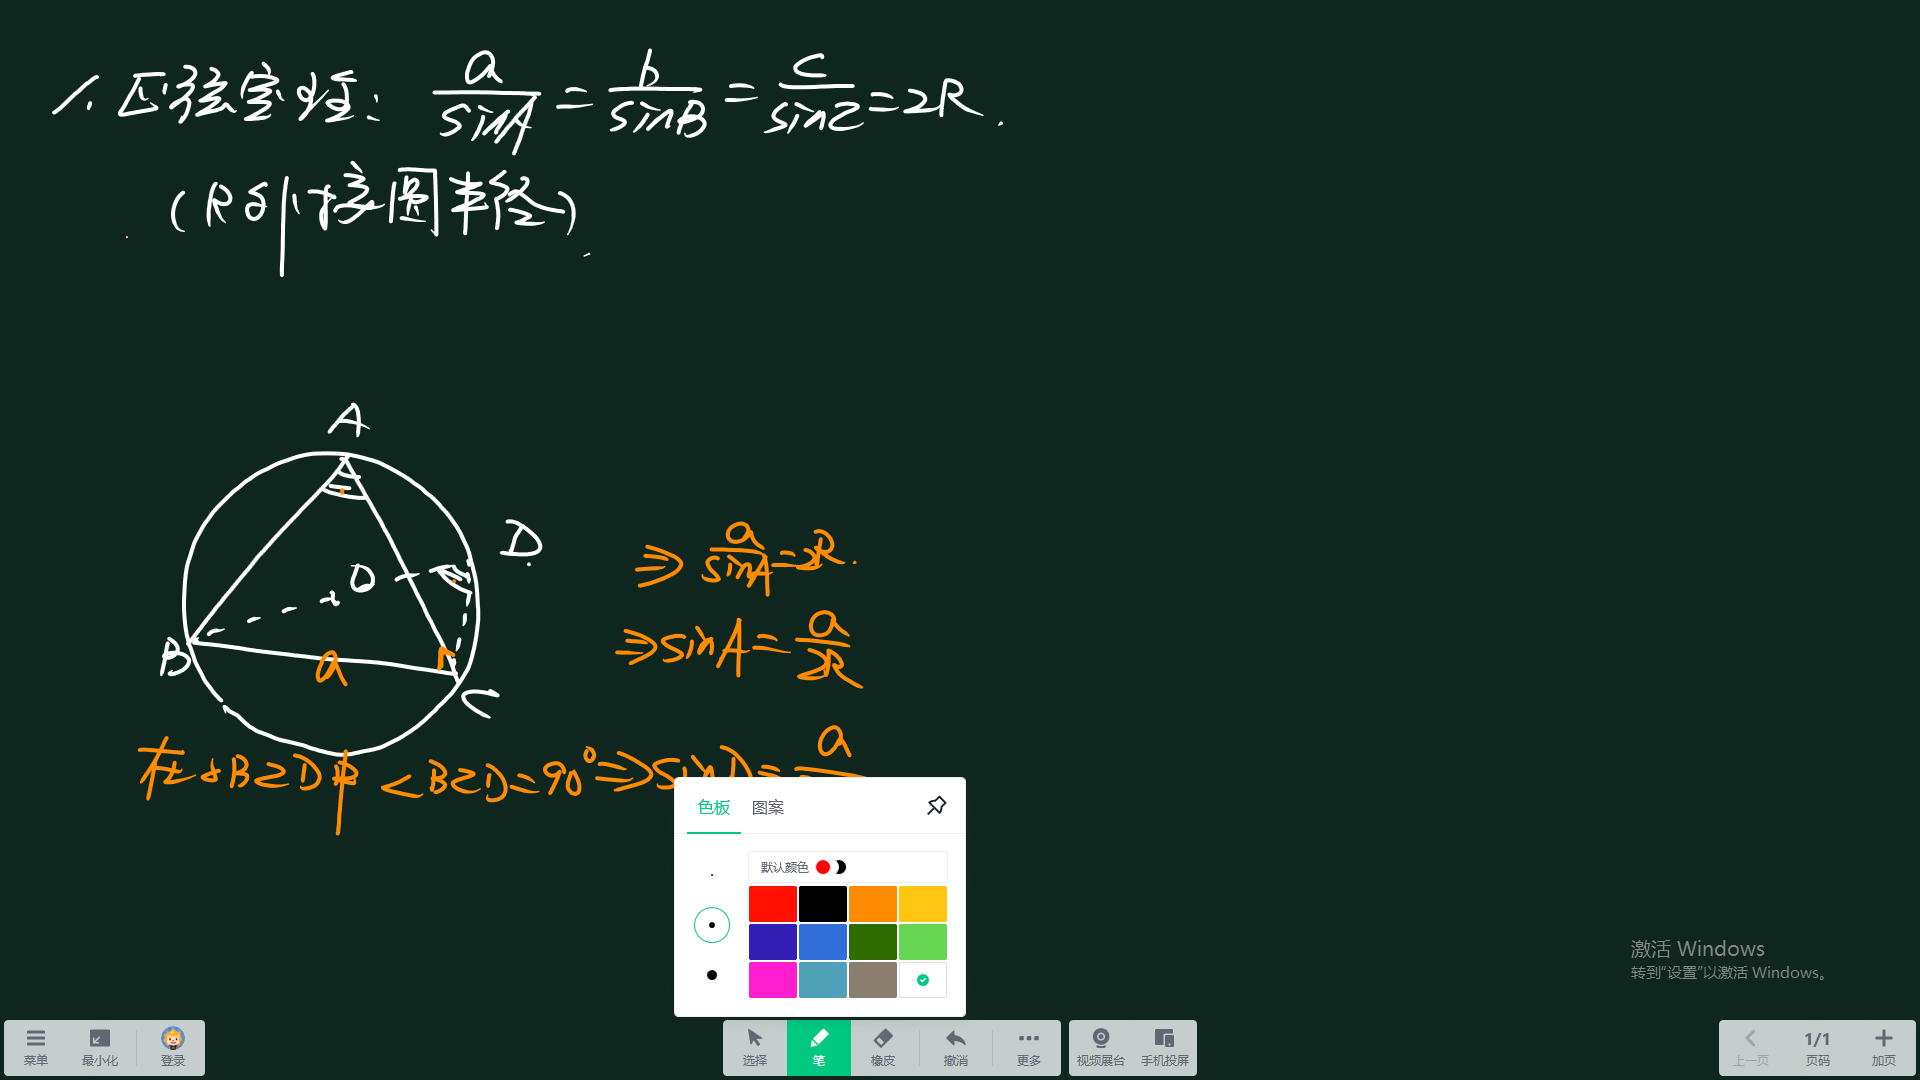 1. 正弦定理: a/sinA = b/sinB = c/sinC = 2R.
(R为外接圆半径)
A
D
O
B
a
C
⇒ a/sinA = 2R.
⇒ sinA = a/2R
在△BCD中 ∠BCD=90°⇒sinD= a
色板 图案
默认颜色
激活 Windows
转到“设置”以激活 Windows。
菜单 最小化 登录 选择 笔 橡皮 撤消 更多 视频展台 手机投屏 上一页 1/1 页码 加页